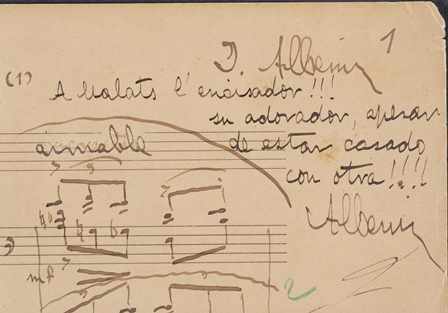 1
I. Albeniz
(1)
A Malats l'encisador!!!
su adorador, apesar
de estar casado
aimable
con otra!!!!
Albeniz
mf
2